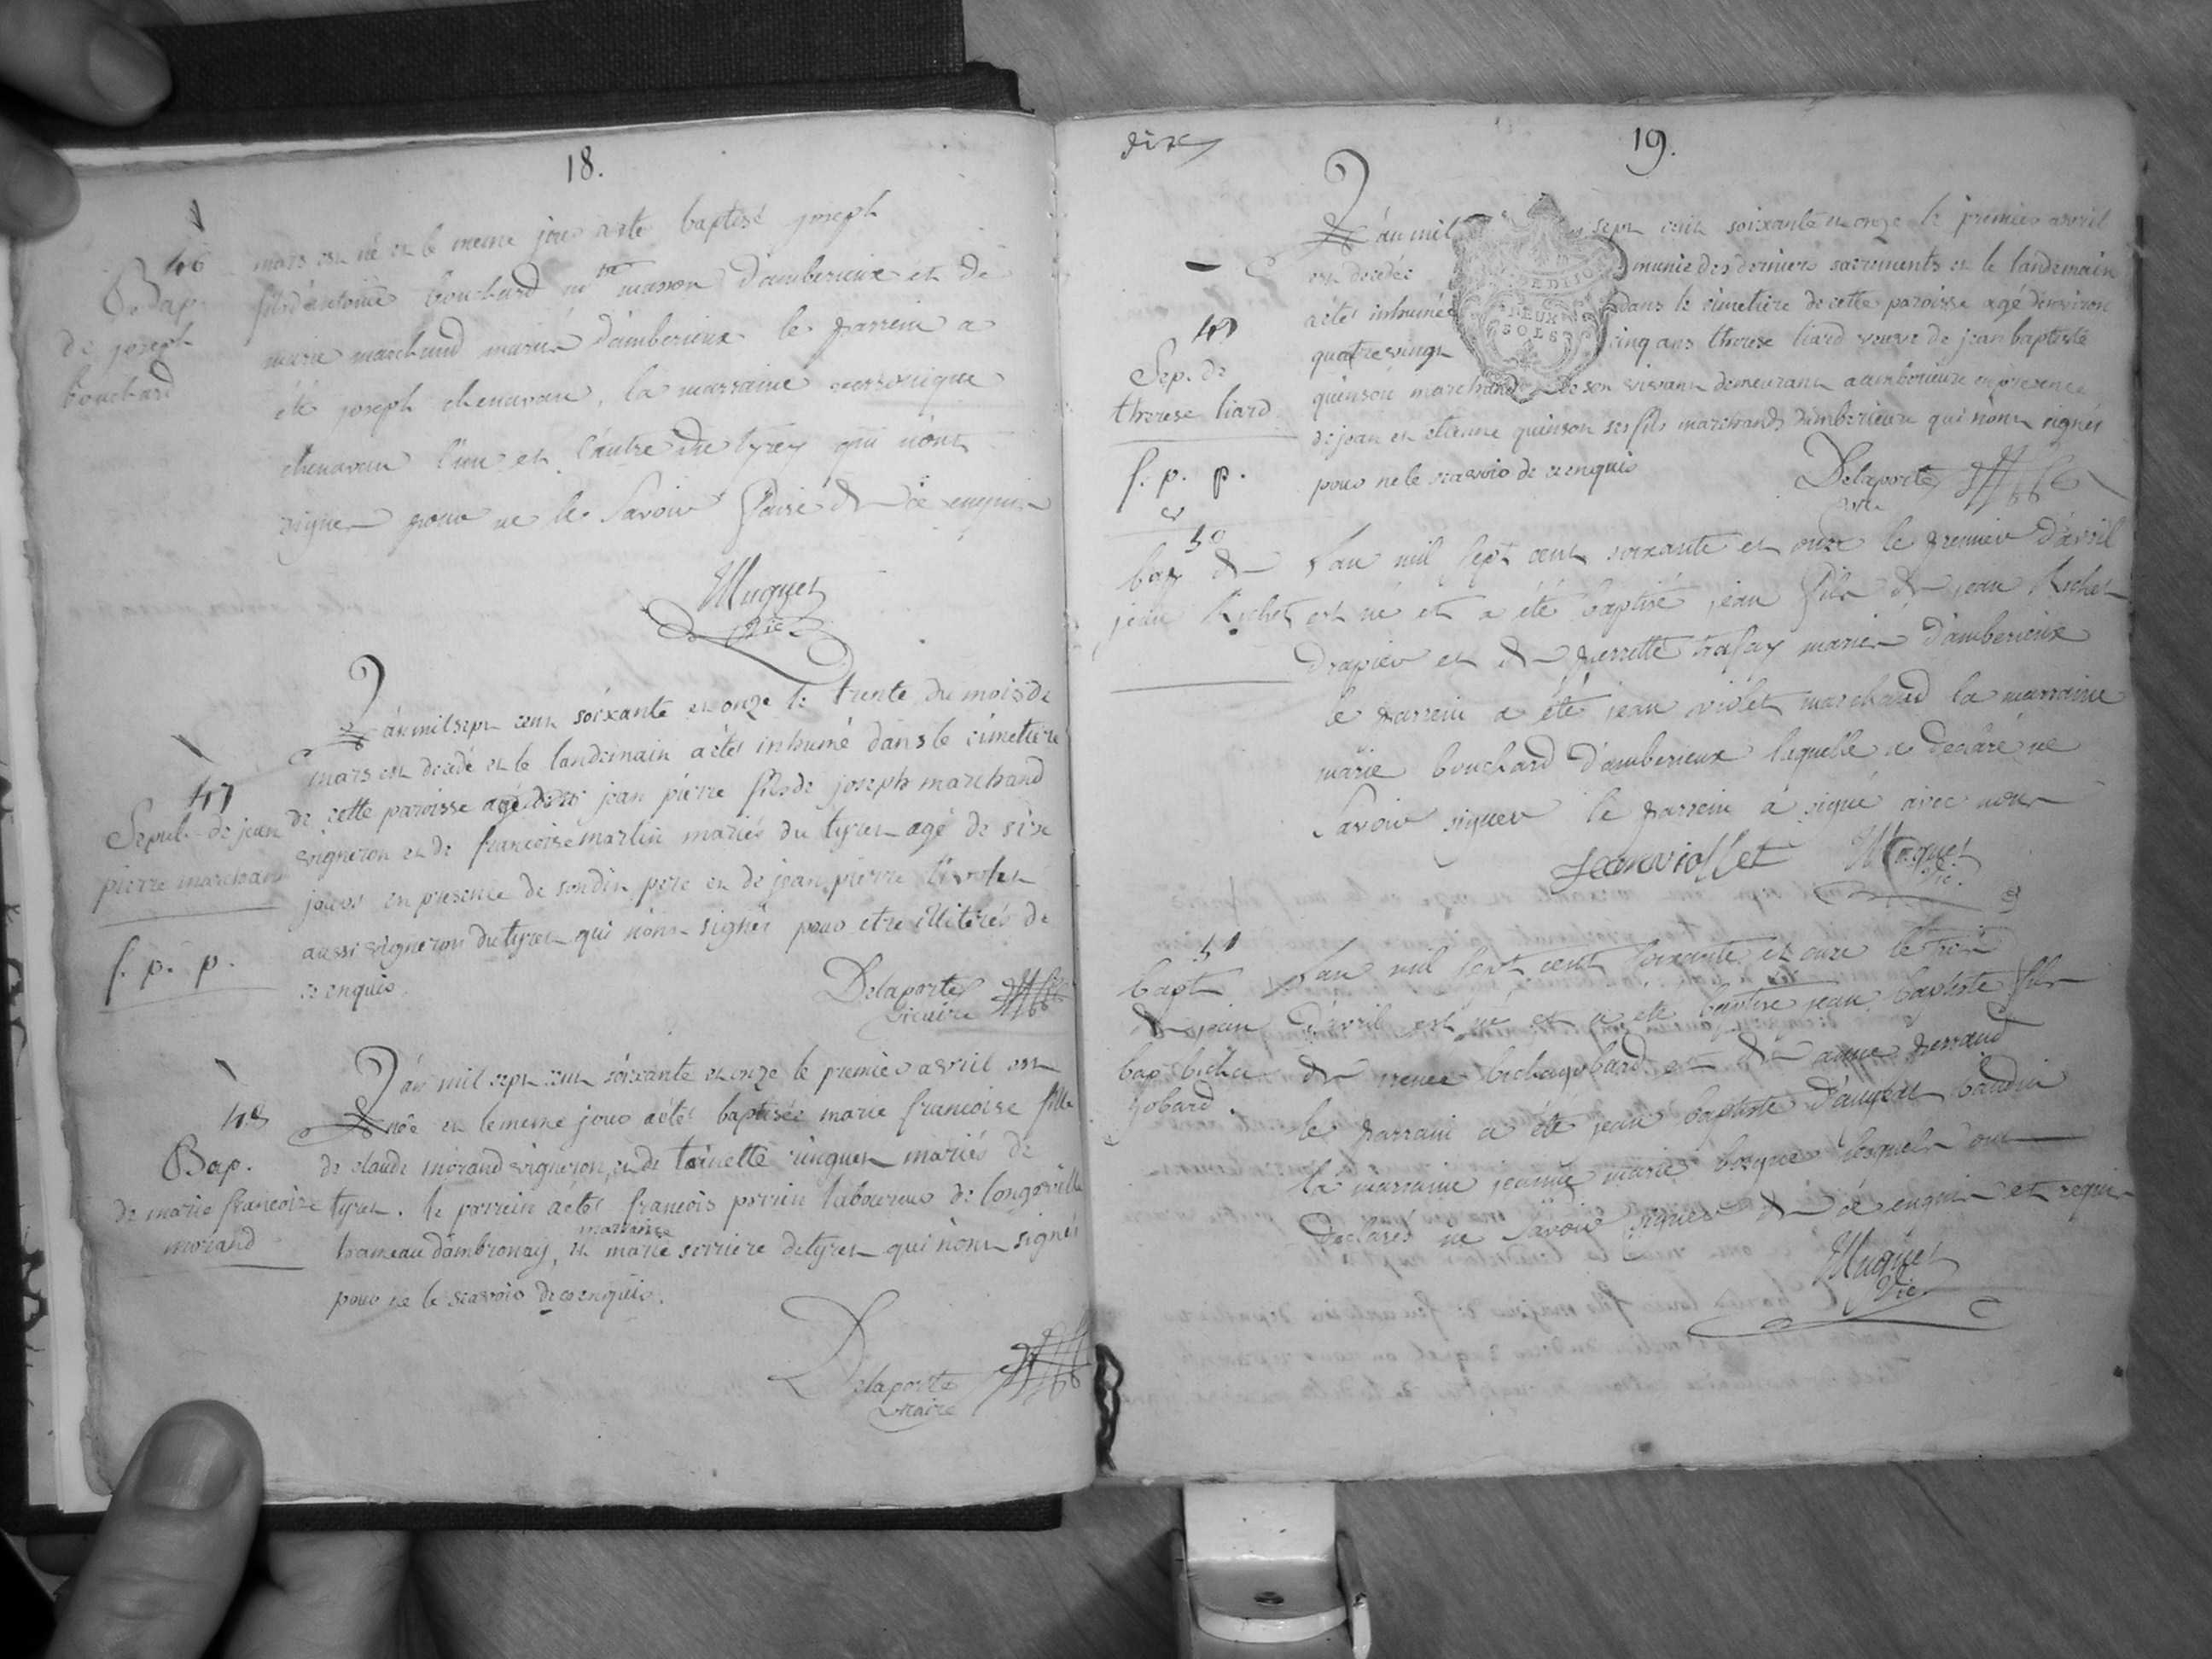 18.
46
Bap
de joseph
bouchard
mars est né et le meme jour a ete baptisé joseph
fils d'antoine bouchard mtre masson d'amberieux et de
marie marchand mariés d'amberieux le parrein a
été joseph chenavau, la marraine
chenavau l'un et l'autre de tyrey qui n'ont
signer pour ne le savoir de ce enquis
Muguet
vic.
47
Sepul. de jean
pierre marchand
f. p. p.
L'an mil sept cent soixante et onze le trente du mois de
mars est decédé et le landemain a étés inhumé dans le cimetiere
de cette paroisse jean pierre fils de joseph marchand
vigneron et de francoise martin mariés du tyret agé de six
jours en presence de son dit pere et de jean pierre
aussi vigneron du tyret qui n'ont signés pour etre illiterés de
ce enquis
Delaporte
vicaire
48
Bap.
de marie francoise
morand
L'an mil sept cent soixante et onze le premier avril est
née et le meme jour a étés baptisée marie francoise fille
de claude morand vigneron, et de toinette mariés de
tyret. le parrein a étés francois perrin laboureur de longeville
hameau d'ambronay, et marraine marie serriere de tyret qui n'ont signés
pour ne le scavoir de ce enquis.
Delaporte
vicaire
dix
19.
49
Sep. de
therese liard
f. p. p.
L'an mil sept cent soixante et onze le premier avril
est decedée munie des derniers sacrements et le landemain
a étés inhumée dans le cimetiere de cette paroisse agé d'environ
quatre vingt cinq ans therese liard veuve de jean baptiste
quinson marchand de son vivant demeurant a amberieux en presence
de jean et etienne quinson ses fils marchands d'amberieux qui n'ont signés
pour ne le scavoir de ce enquis
Delaporte
50
bap de
jean Richet
L'an mil sept cent soixante et onze le premier d'avril
est né et a été baptisé jean fils de jean Richet
drapier et de pierrette trafay mariés d'amberieux
le parrein a été jean violet marchand la marraine
marie bouchard d'amberieux laquelle a declaré ne
savoir signer le parrein a signé avec nous
jean viollet
Muguet
vic.
51
bapt
de jean
bap
gobard.
L'an mil sept cent soixante et onze le trois
d'avril est né et a été baptisé jean baptiste fils
de gobard et de anne perraud
le parrain a été jean baptiste
la marraine jeanne marie lesquels ont
declarés ne savoir signer de ce enquis et requis
Muguet
vic.